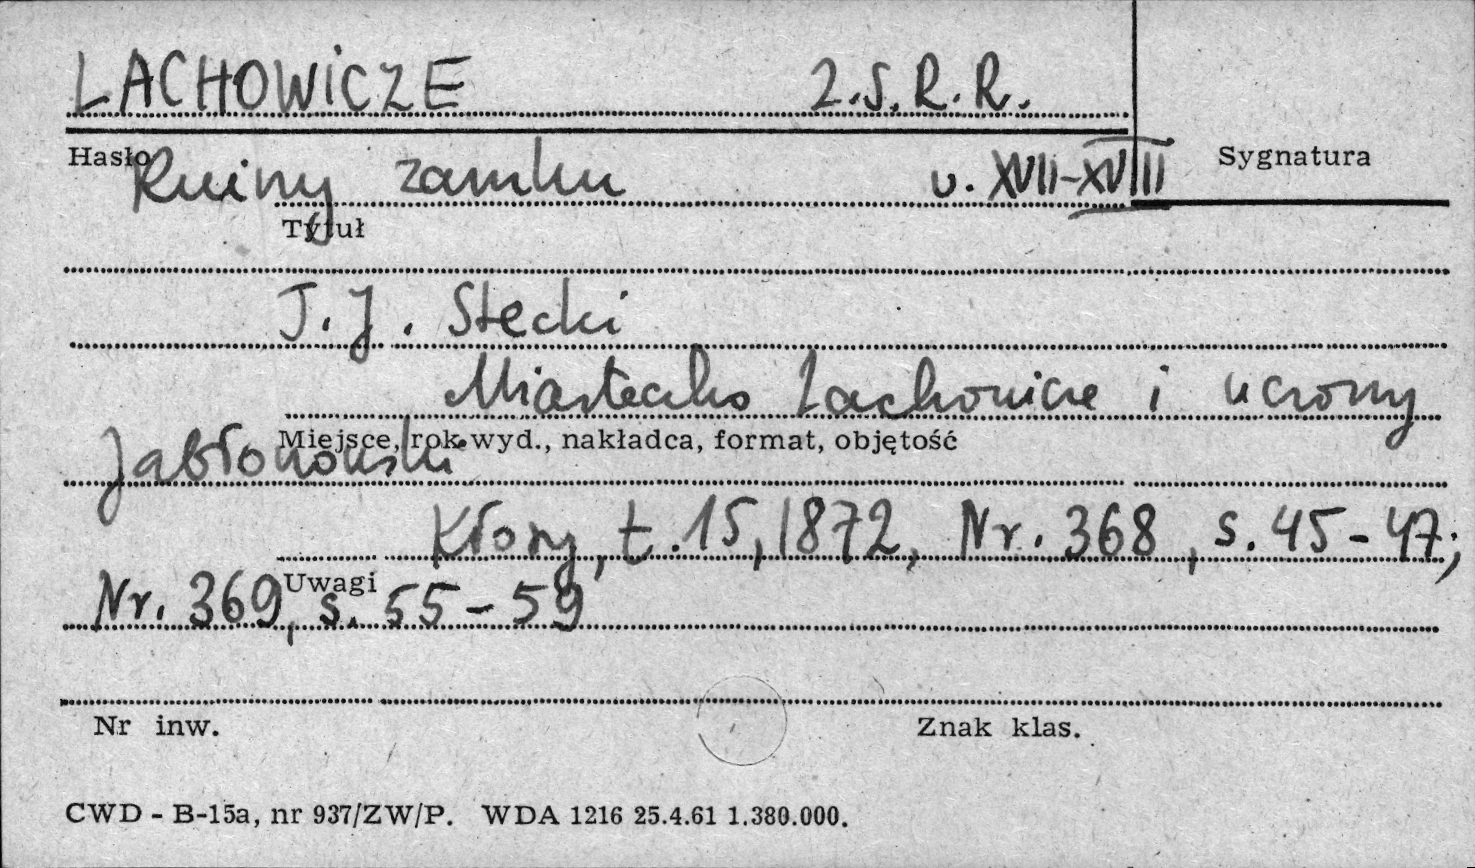 LACHOWICZE Z.S.R.R.
Hasło
Sygnatura
Ruiny zamku w. XVII-XVIII
Tytuł
T.J. Stecki
Miasteczko Lachowicze i uczony
Miejsce, rok wyd., nakładca, format, objętość
Jabłonowski
Kłosy, t.15, 1872, Nr. 368, s. 45-47;
Uwagi
Nr. 369, s. 55-59
Nr inw. Znak klas.
CWD - B-15a, nr 937/ZW/P. WDA 1216 25.4.61 1.380.000.